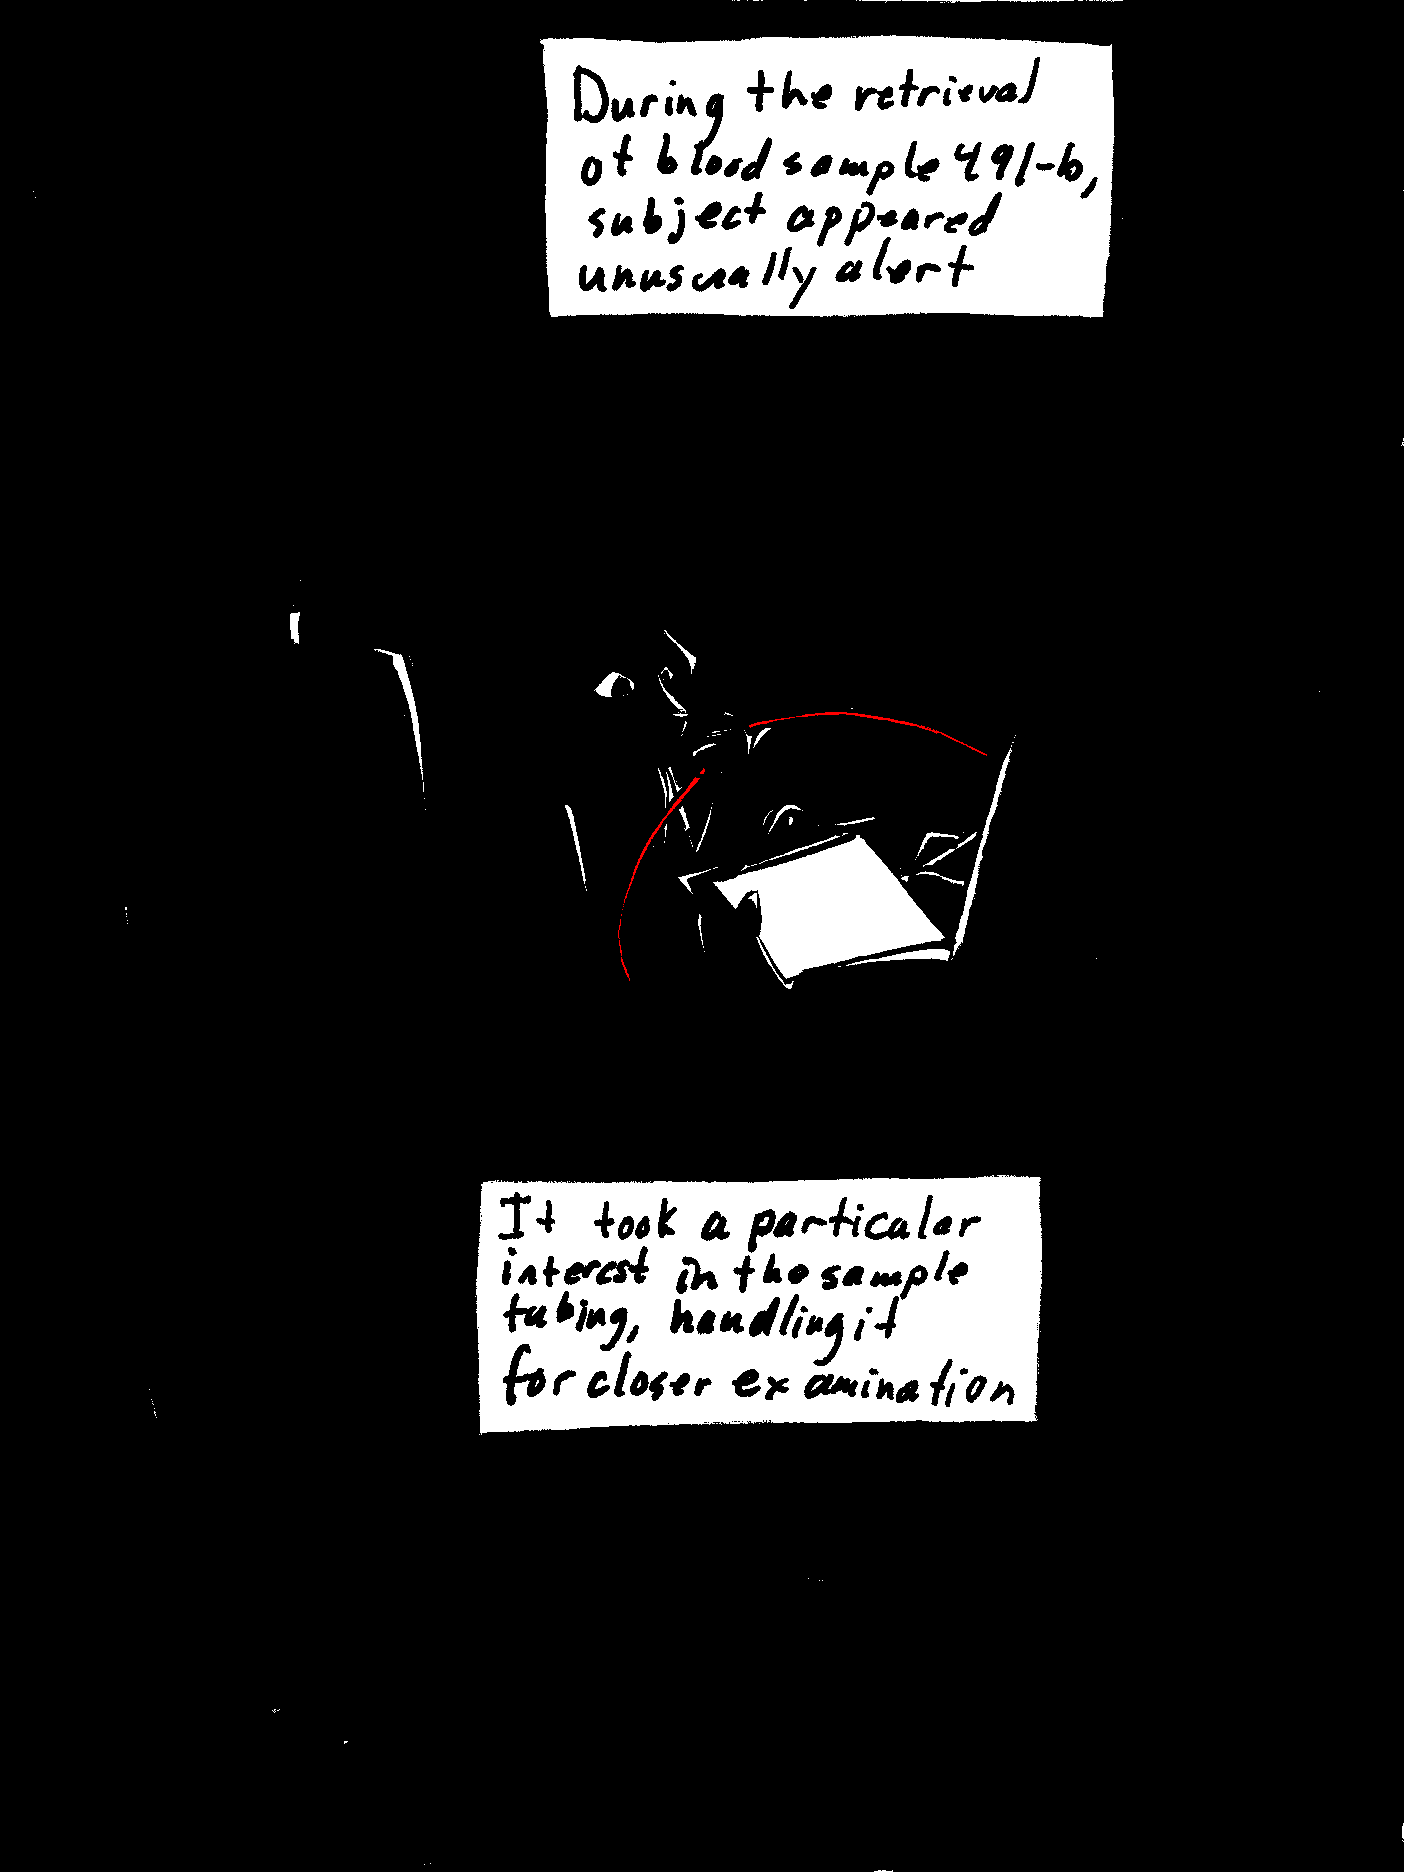 During the retrieval
of blood sample 491-b,
subject appeared
unusually alert
It took a particular
interest in the sample
tubing, handling it
for closer examination